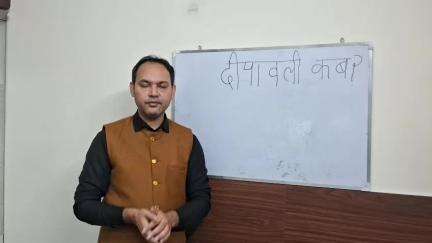 दीपावली कब?